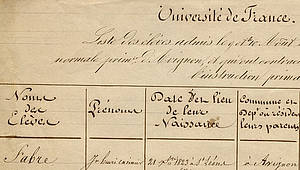 Université de France.
Liste des élèves admis le 9 et 10 Août
normale prim. d'Avignon, et qui ont contract
l'instruction prima
Noms
des
Elèves
Prénoms
Date et lieu
de leur
Naissance
Commune et
Dép. où réside
leurs parents
Fabre
Jn henri casimir
21 Xbre 1823 à St Léons
à Avignon